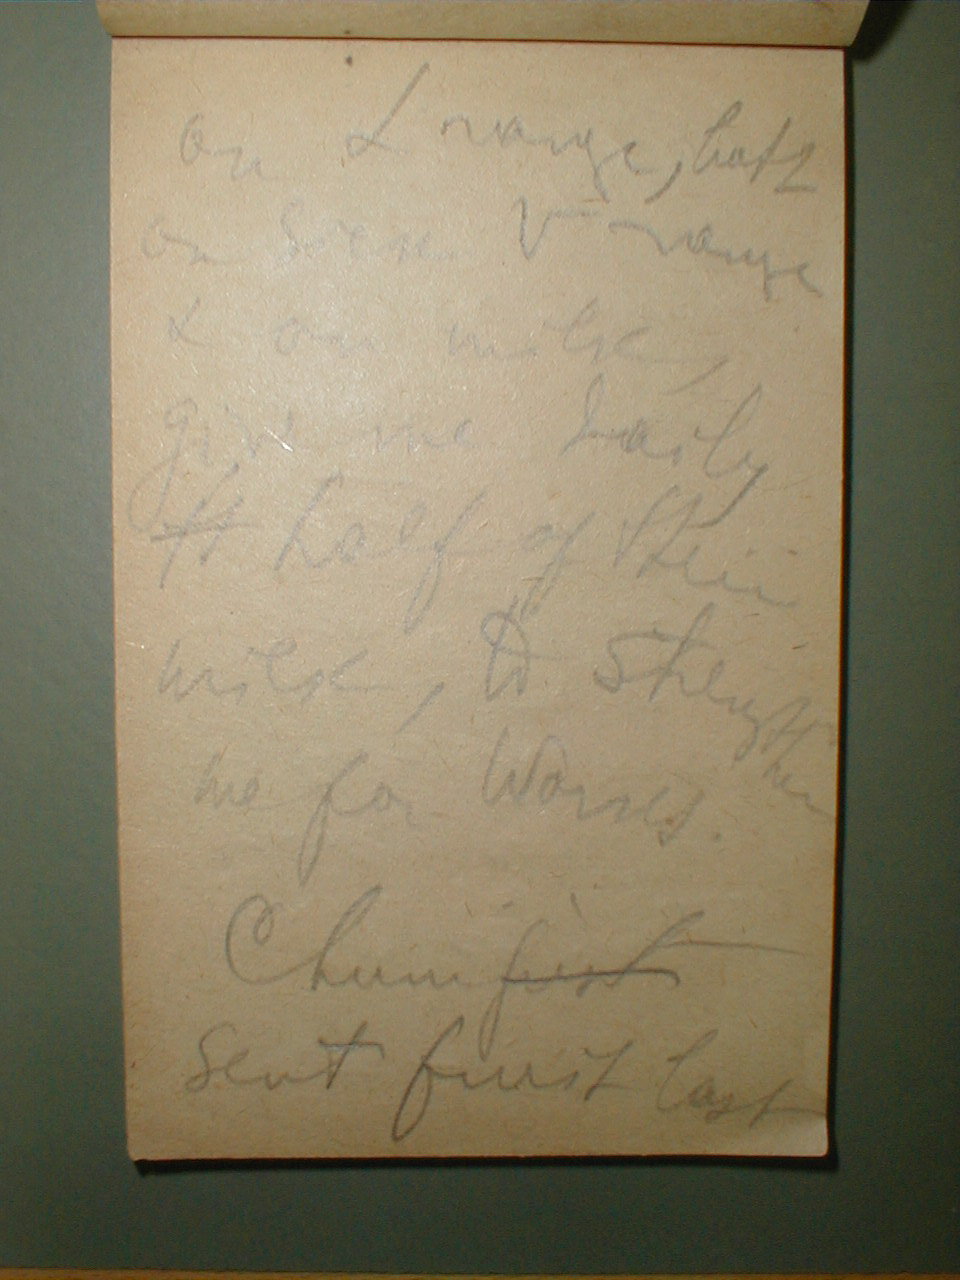 on & range, both
on V range
& on milk,
give me daily
half of their
milk, to strengthen
me for
Chum first
sent first last